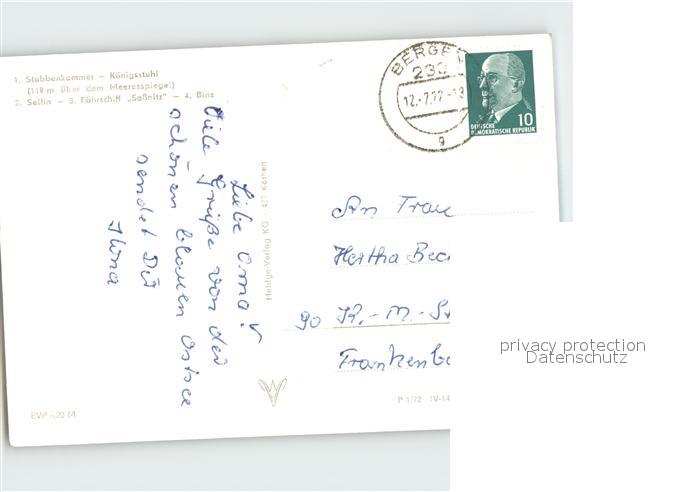 1. Stubbenkammer – Königsstuhl
(119 m über dem Meeresspiegel)
2. Sellin – 3. Fährschiff „Saßnitz" – 4. Binz
BERGEN
233
12.-7.72.-18
g
DEUTSCHE
DEMOKRATISCHE REPUBLIK
10
Liebe Oma!
Viele Grüße von der
schönen blauen Ostsee
sendet Dir
Ilona
Heldge-Verlag KG · 437 Köthen
An Frau
Hertha Bec
90 K.-M.-St
Frankenb
EVP -,20 M
P 1/72 IV-14
privacy protection
Datenschutz